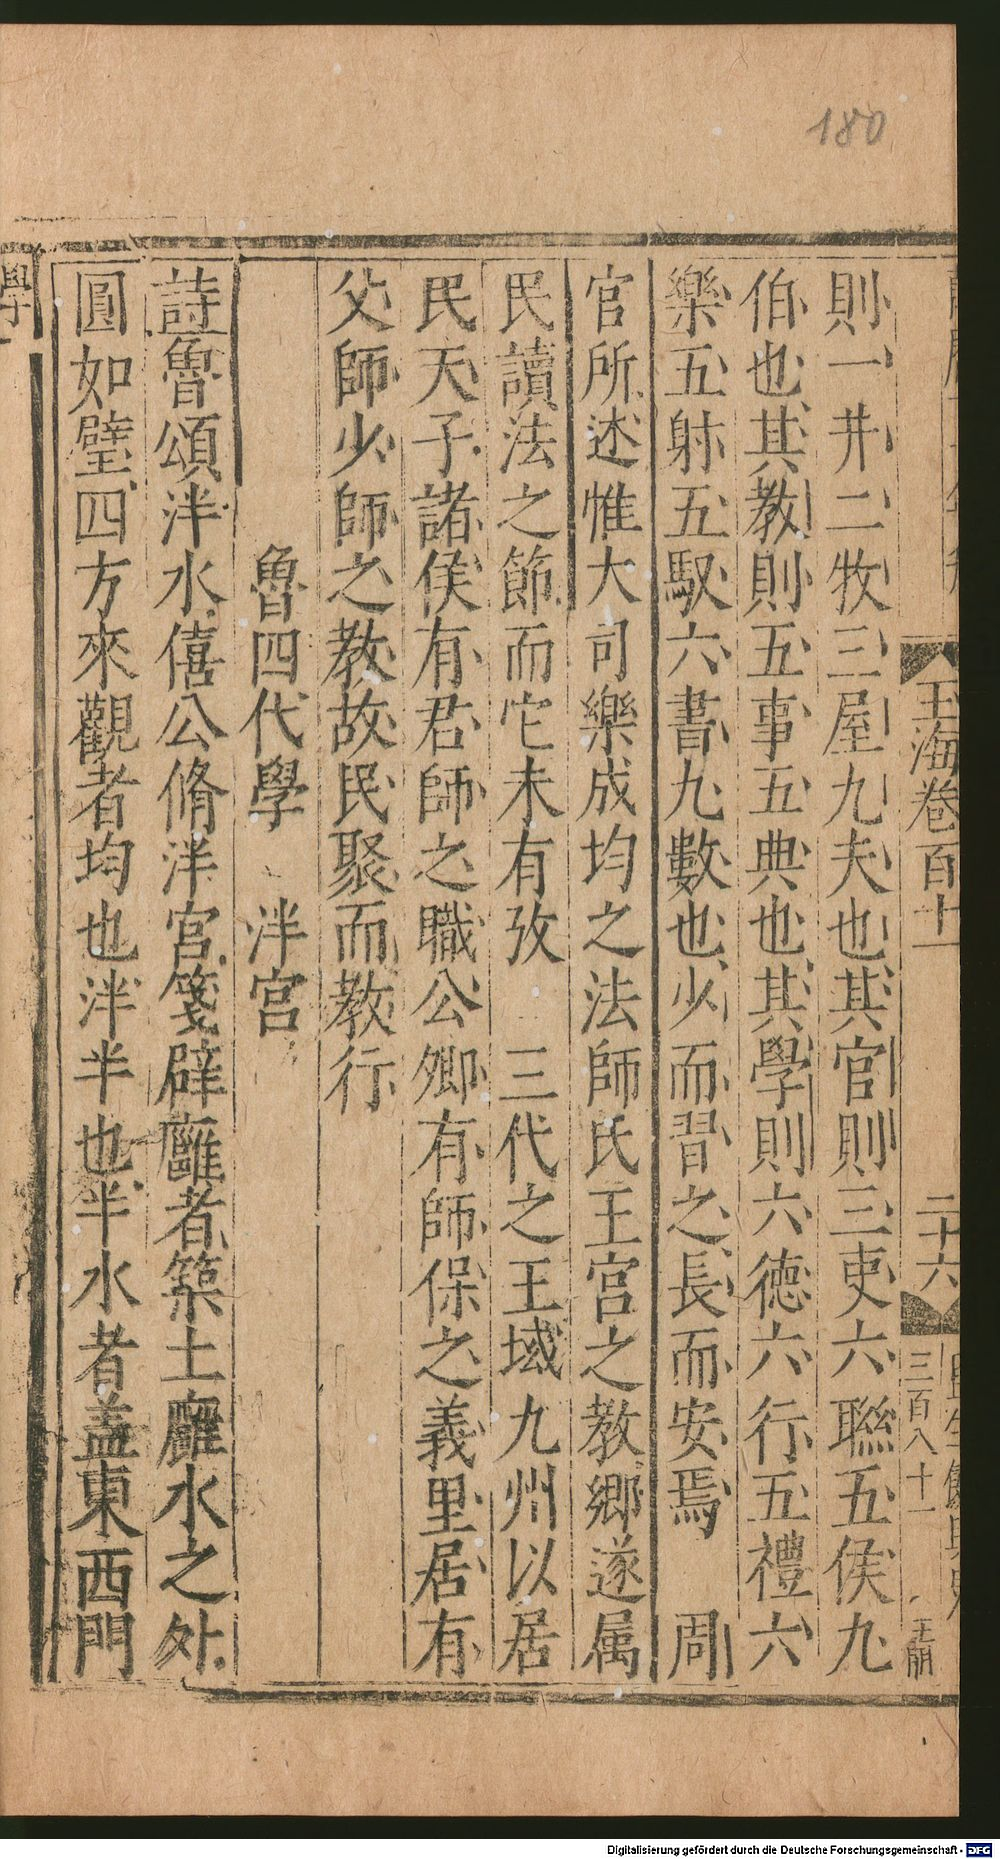 180
玉海卷百十一
二十六
三百八十一
則一井二牧三屋九夫也其官則三吏六聯五侯九
伯也其教則五事五典也其學則六德六行五禮六
樂五射五馭六書九數也少而習之長而安焉　周
官所述惟大司樂成均之法師氏王宮之教鄉遂属
民讀法之節而它未有攷　三代之王域九州以居
民天子諸侯有君師之職公卿有師保之義里居有
父師少師之教故民聚而教行
魯四代學　泮宮
詩魯頌泮水僖公脩泮宮箋辟廱者築土廱水之外
圓如璧四方來觀者均也泮半也半水者盖東西門
學
Digitalisierung gefördert durch die Deutsche Forschungsgemeinschaft - DFG